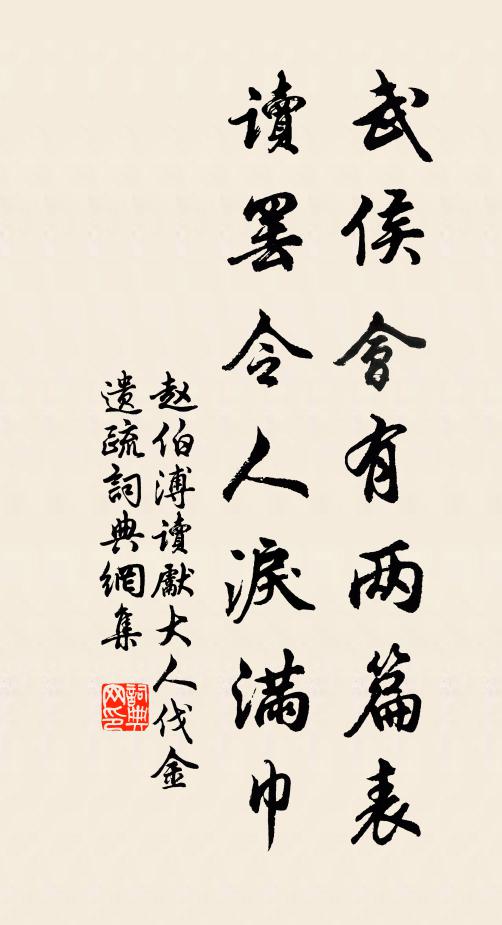 武侯會有两篇表
讀罢令人淚滿巾
赵伯溥讀獻大人伐金
遺疏詞典網集
詞典
网印